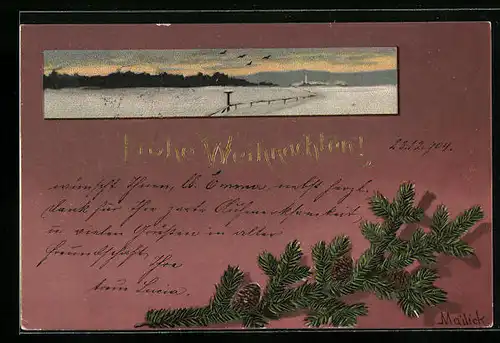 Frohe Weihnachten!
22.12.904.
wünscht Ihnen, lb. Emma nebst herzl.
Dank für Ihre zarte Aufmerksamkeit
u. vielen Grüßen in alter
Freundschaft Ihre
treue Lucia.
Mailick